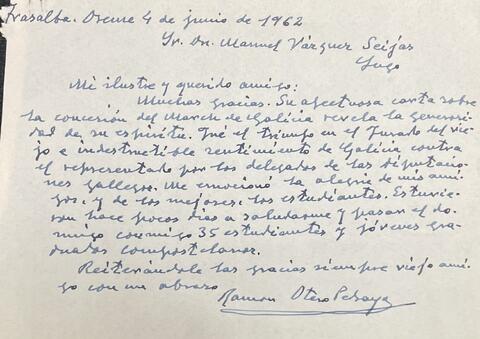 Trasalba. Orense 4 de junio de 1962
Sr. Dn. Manuel Vázquez Seijas
Lugo
Mi ilustre y querido amigo:
Muchas gracias. Su afectuosa carta sobre
la concesión del March de Galicia revela la generosi-
dad de su espíritu. Fué el triunfo en el Jurado del vie-
jo e indestructible sentimiento de Galicia contra
el representado por los delegados de las Diputacio-
nes gallegas. Me emocionó la alegría de mis ami-
gos. y de los mejores: los estudiantes. Estuvie-
ron hace pocos días a saludarme y pasar el do-
mingo conmigo 35 estudiantes y jóvenes gra-
duados compostelanos.
Reiterándole las gracias siempre viejo ami-
go con un abrazo
Ramón Otero Pedrayo